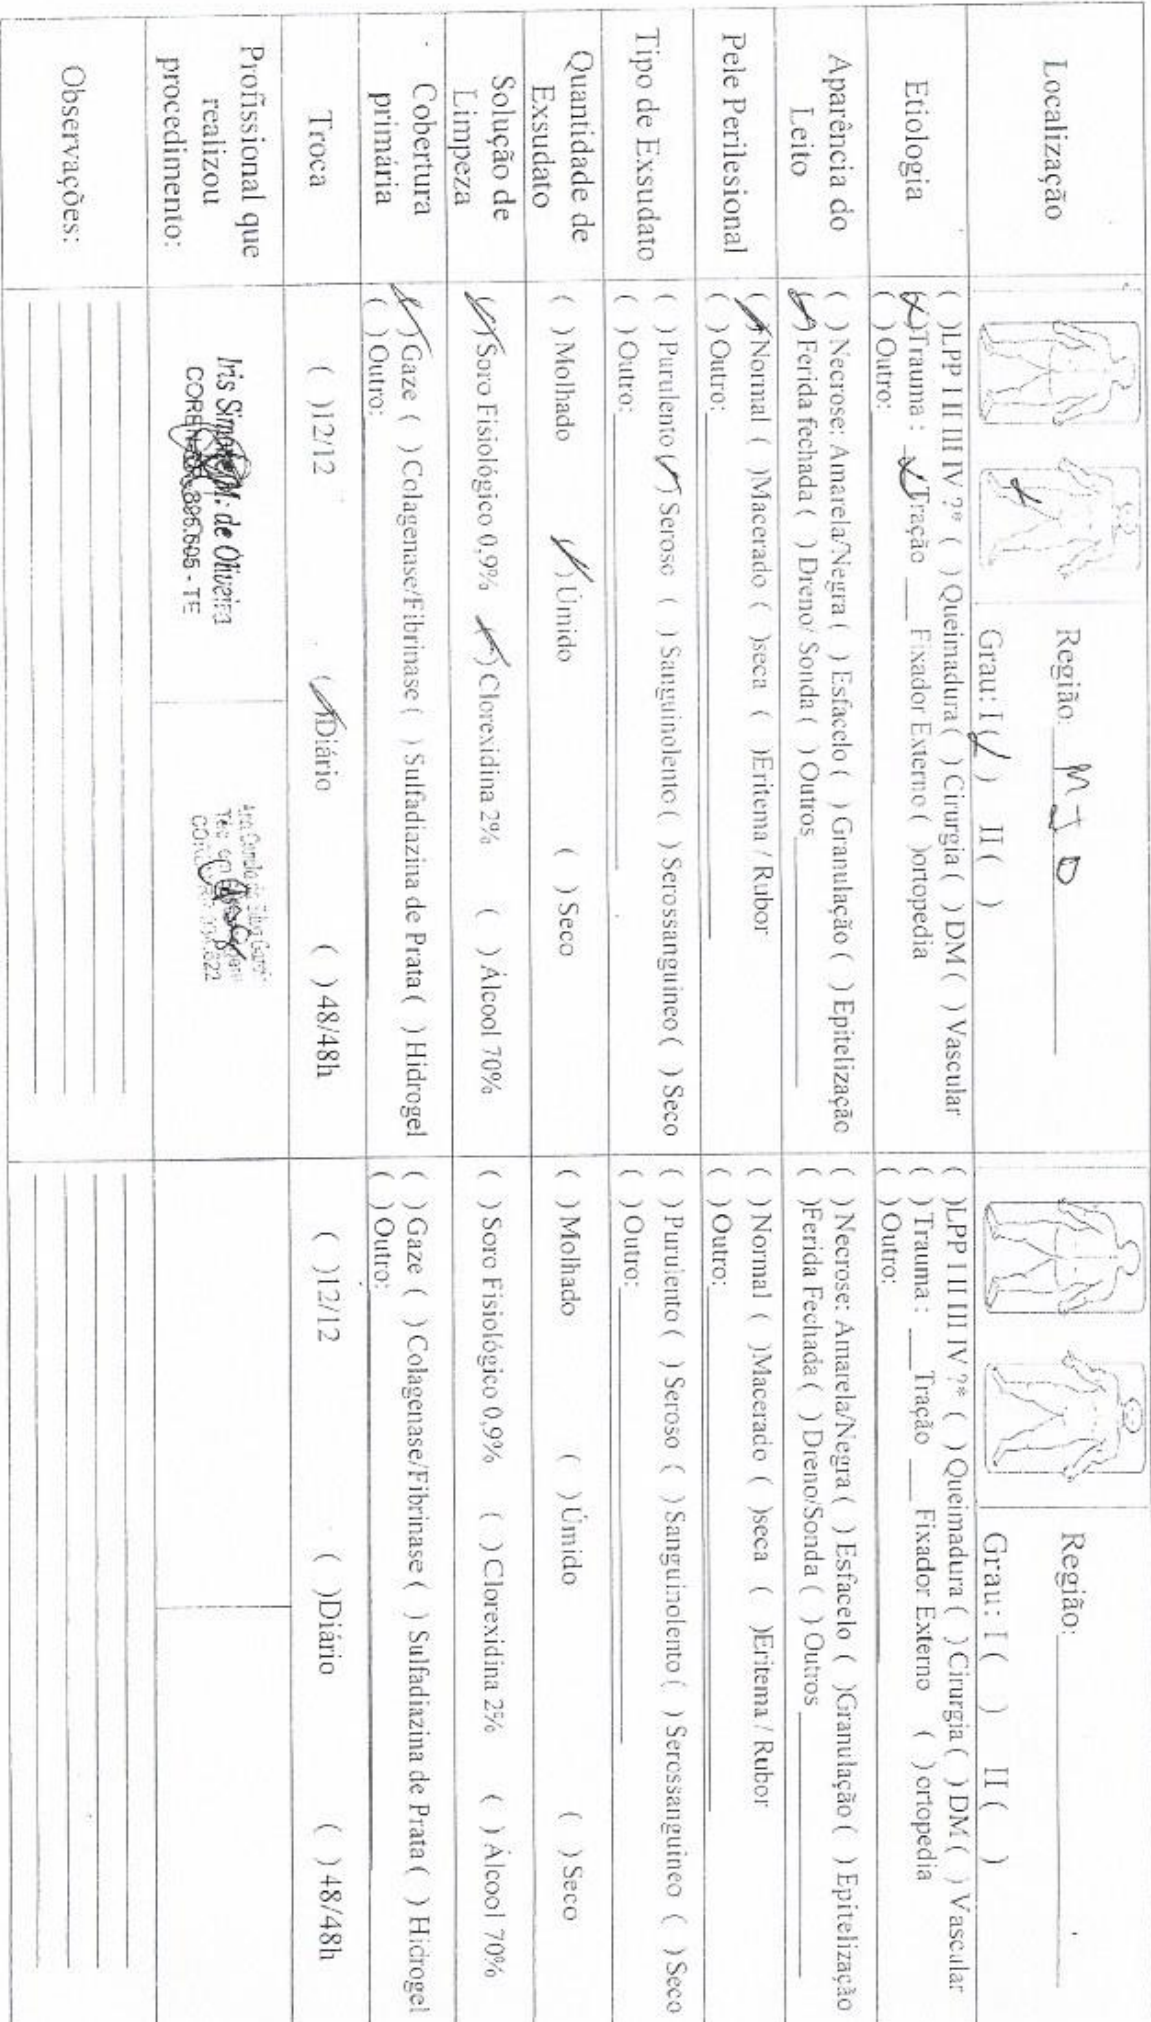 Localização
Região: MJD
Grau: I (✓) II ( )
Região:
Grau: I ( ) II ( )
Etiologia
( )LPP I II III IV ?* ( ) Queimadura ( ) Cirurgia ( ) DM ( ) Vascular
(X)Trauma : X Tração ___ Fixador Externo ( )ortopedia
( ) Outro:
( )LPP I II III IV ?* ( ) Queimadura ( ) Cirurgia ( ) DM ( ) Vascular
( ) Trauma : ___ Tração ___ Fixador Externo ( ) ortopedia
( ) Outro:
Aparência do
Leito
( ) Necrose: Amarela/Negra ( ) Esfacelo ( ) Granulação ( ) Epitelização
(✓) Ferida fechada ( ) Dreno/ Sonda ( ) Outros
( ) Necrose: Amarela/Negra ( ) Esfacelo ( )Granulação ( ) Epitelização
( )Ferida Fechada ( ) Dreno/Sonda ( ) Outros
Pele Perilesional
(✓)Normal ( )Macerado ( )seca ( )Eritema / Rubor
( ) Outro:
( ) Normal ( )Macerado ( )seca ( )Eritema / Rubor
( ) Outro:
Tipo de Exsudato
( ) Purulento (✓) Seroso ( ) Sanguinolento ( ) Serossanguineo ( ) Seco
( ) Outro:
( ) Purulento ( ) Seroso ( ) Sanguinolento ( ) Serossanguineo ( ) Seco
( ) Outro:
Quantidade de
Exsudato
( ) Molhado (✓) Úmido ( ) Seco
( ) Molhado ( ) Úmido ( ) Seco
Solução de
Limpeza
(✓) Soro Fisiológico 0,9% (✓) Clorexidina 2% ( ) Álcool 70%
( ) Soro Fisiológico 0,9% ( ) Clorexidina 2% ( ) Álcool 70%
Cobertura
primária
(✓)Gaze ( ) Colagenase/Fibrinase ( ) Sulfadiazina de Prata ( ) Hidrogel
( ) Outro:
( ) Gaze ( ) Colagenase/Fibrinase ( ) Sulfadiazina de Prata ( ) Hidrogel
( ) Outro:
Troca
( )12/12 (✓)Diário ( ) 48/48h
( )12/12 ( )Diário ( ) 48/48h
Profissional que
realizou
procedimento:
Iris Simone M. de Oliveira
COREN 896.605 - TE
Observações: